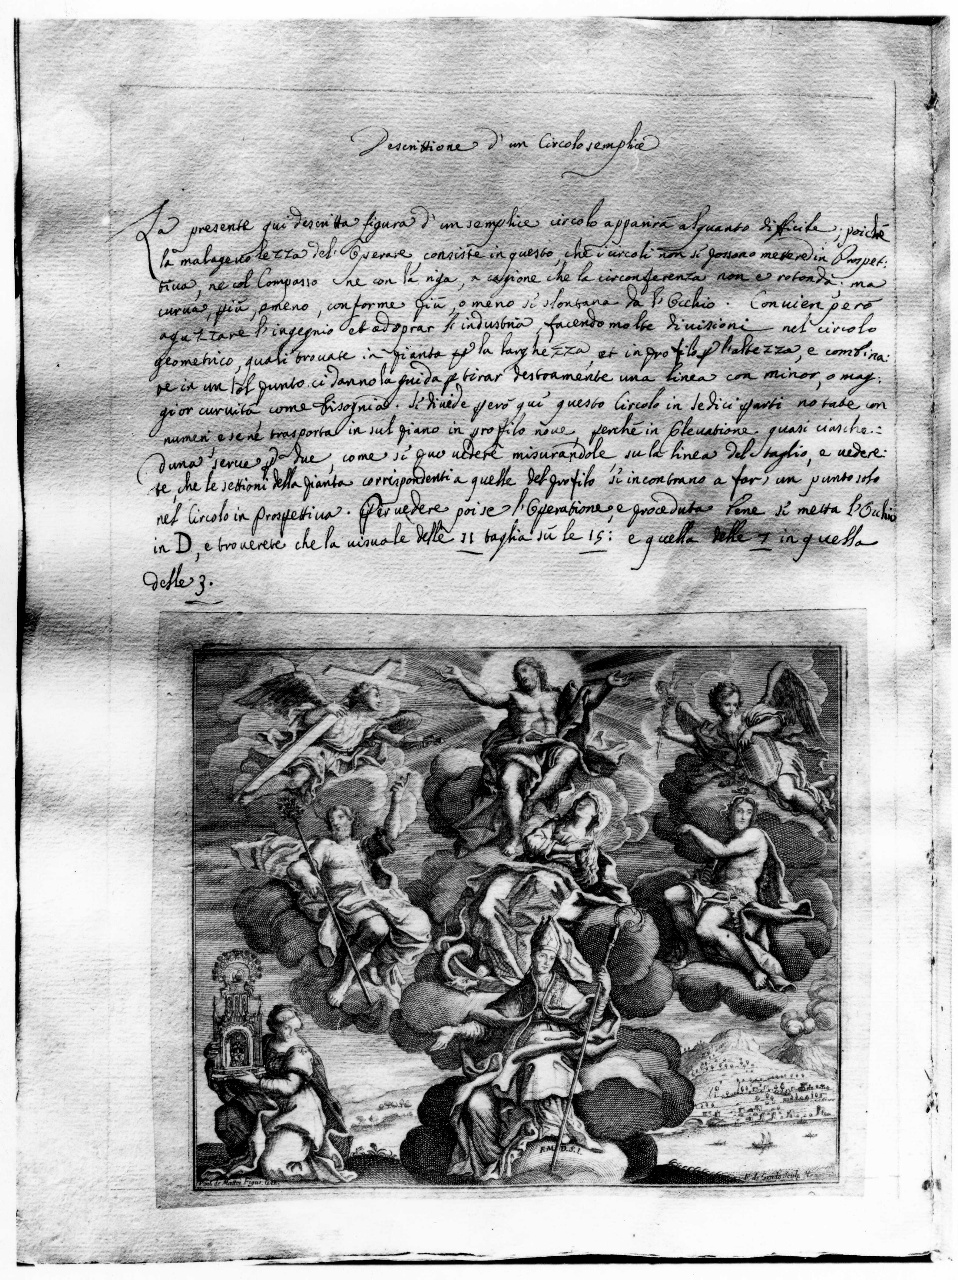 Descrittione d'un Circolo semplice
La presente qui descritta figura d'un semplice circolo apparirà alquanto difficile, poiche
la malageuolezza del Operare consiste in questo, che i circoli non si possono mettere in Prospet:
tiua, ne col Compasso ne con la riga, a cagione che la circonferenza non e rotonda ma
curua, più, o meno, conforme più, o meno si slontana da l'Occhio. Conuien però
aguzzare l'ingegnio et adoprar l'industria, facendo molte diuisioni nel circolo
geometrico, quali trouate in pianta p la larghezza et in profilo p l'altezza, e combina:
te in un tal punto ci danno la guida p tirar destramente una linea con minor, o mag:
gior curuità come bisognia. Si diuide però qui questo Circolo in sedici parti notate con
numeri e se né trasporta in sul piano in profilo noue, perche in Eleuatione quasi ciasche:
duna serue p due, come si può vedere misurandole su la linea del taglio, e vedere:
te che le settioni della pianta corrispondenti a quelle del profilo si incontrano a far un punto solo
nel Circolo in Prospettiua. Per vedere poi se l'Operatione e proceduta bene si metta l'Occhio
in D, e trouerete che la uisuale delle 11 taglia sù le 15: e quella delle 7 in quella
delle 3.